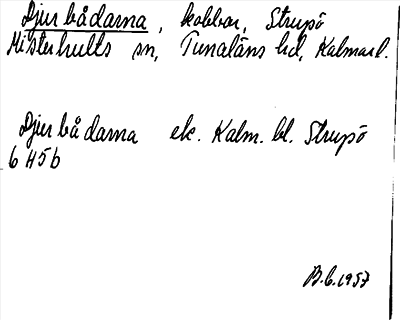 Djurbådarna, kobbar, Strupö
Misterhults sn, Tunaläns hd, Kalmar l.
Djurbådarna ek. Kalm. bl. Strupö
6 H5b
B.C. 1957